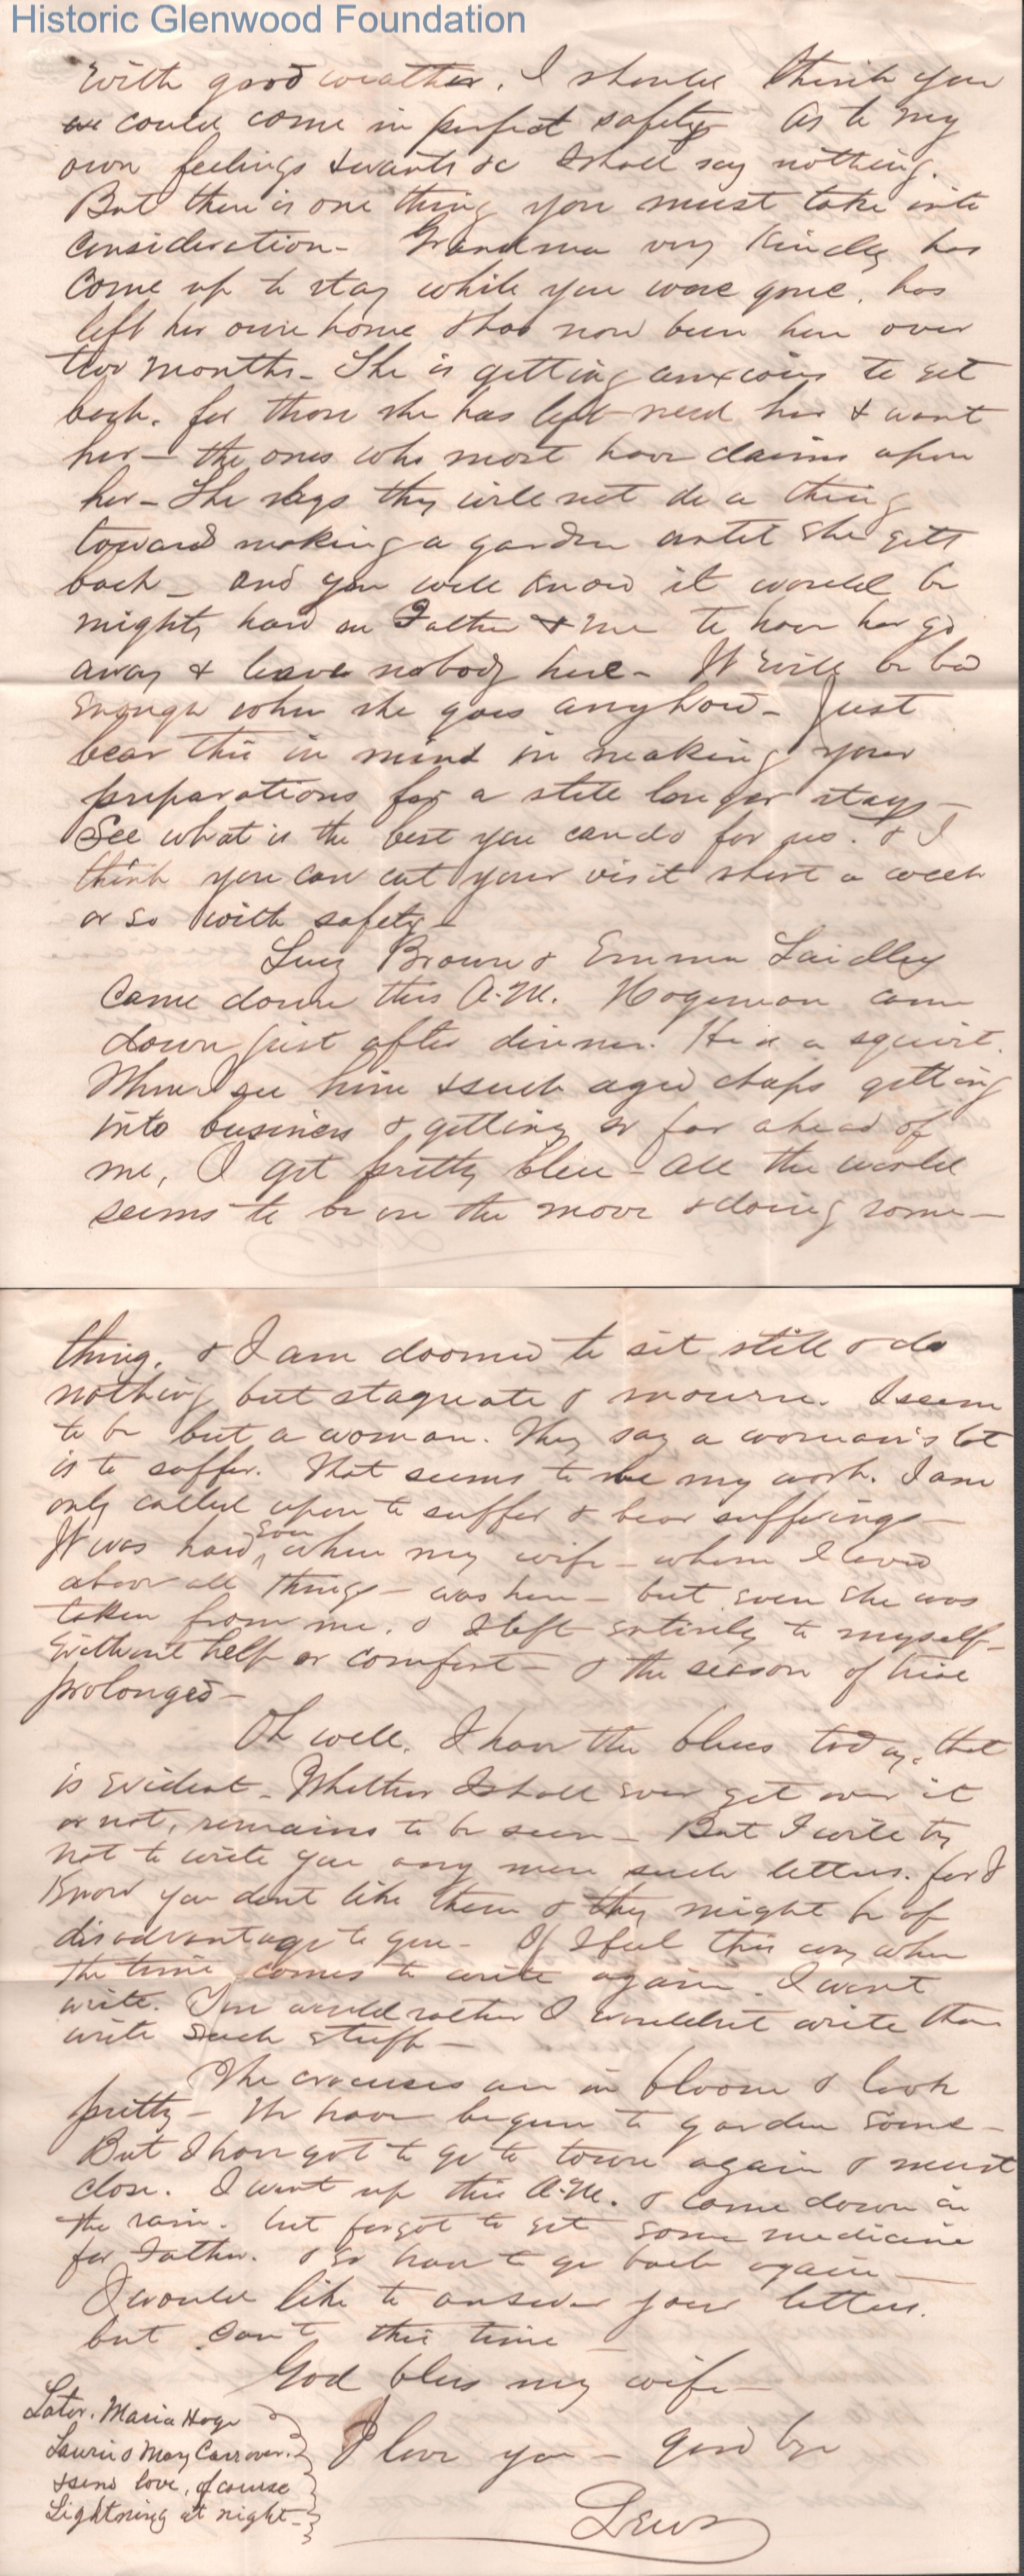 Historic Glenwood Foundation
with good weather. I should think you
could come in perfect safety. As to my
own feelings & wants &c I shall say nothing.
But there is one thing you must take into
consideration - Grandma very kindly has
come up to stay while you were gone. has
left her own home & has now been here over
two months - She is getting anxious to get
back. for those she has left need her & want
her - the ones who most have claims upon
her - She says they will not do a thing
toward making a garden until she gets
back - and you well know it would be
mighty hard on Father & me to have her go
away & leave nobody here - It will be bad
enough when she goes anyhow - Just
bear this in mind in making your
preparations for a still longer stay -
See what is the best you can do for us. & I
think you can cut your visit short a week
or so with safety -
Lucy Brown & Emma Laidley
came down this A.M. Hogeman came
down just after dinner. He is a squirt.
When I see him & such aged chaps getting
into business & getting so far ahead of
me, I get pretty blue - All the world
seems to be on the move & doing some-
thing. & I am doomed to sit still & do
nothing but stagnate & mourn. I seem
to be but a woman. They say a woman's lot
is to suffer. That seems to be my work. I am
only called upon to suffer & bear sufferings -
It was hard even when my wife - whom I loved
above all things - was here - but even she was
taken from me. & I left entirely to myself -
without help or comfort - & the season of
prolonged -
Oh well. I have the blues today. that
is evident - Whether I shall ever get over it
or not, remains to be seen - But I will try
not to write you any more such letters. for I
know you dont like them & they might be of
disadvantage to you - If I feel this way when
the time comes to write again. I wont
write. You would rather I wouldnt write than
write such stuff -
The crocuses are in bloom & look
pretty - We have begun to garden some -
But I have got to go to town again & must
close. I went up this A.M. & came down in
the rain. but forgot to get some medicine
for Father. & so have to go back again -
I would like to answer your letters.
but can't this time -
God bless my wife -
I love you - good bye
Lewis
Later. Maria Hoge
Laurie & May Carr over.
& send love, of course
Lightning at night -